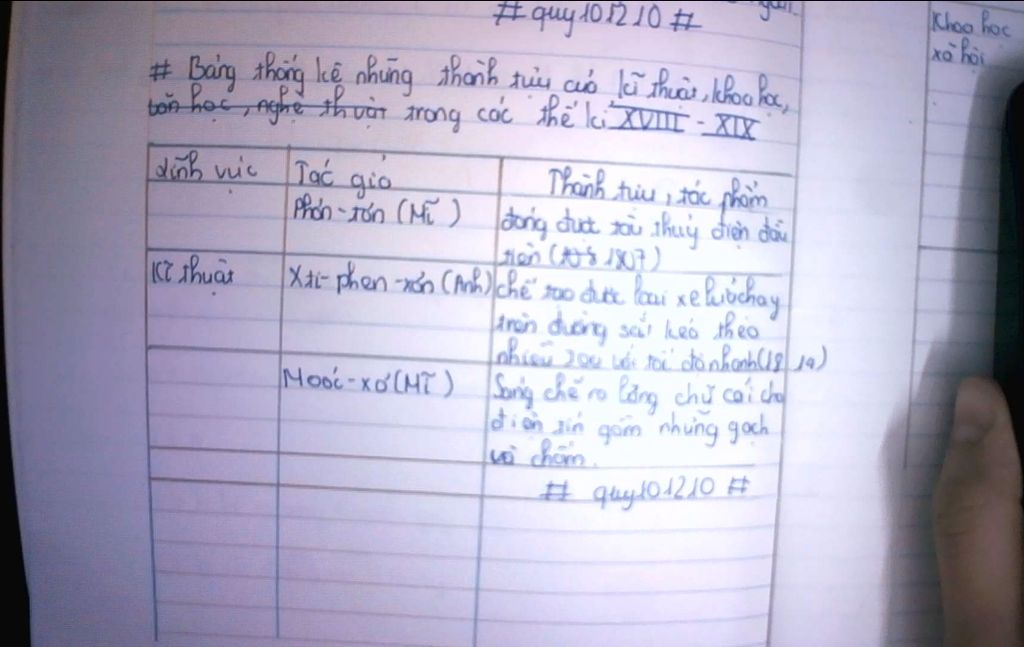 # quy101210 #
Khoa học
xã hội
# Bảng thống kê những thành tựu của kĩ thuật, khoa học,
văn học, nghệ thuật trong các thế kỉ XVIII - XIX
Lĩnh vực
Tác giả
Thành tựu, tác phẩm
Phơn-tơn (Mĩ)
đóng được tàu thuỷ điện đầu
tiên (1807)
Kĩ thuật
Xti-phen-xơn (Anh)
chế tạo được loại xe lửa chạy
trên đường sắt kéo theo
nhiều toa với tốc độ nhanh (1814)
Moóc-xơ (Mĩ)
Sáng chế ra bảng chữ cái cho
điện tín gồm những gạch
và chấm.
# quy101210 #